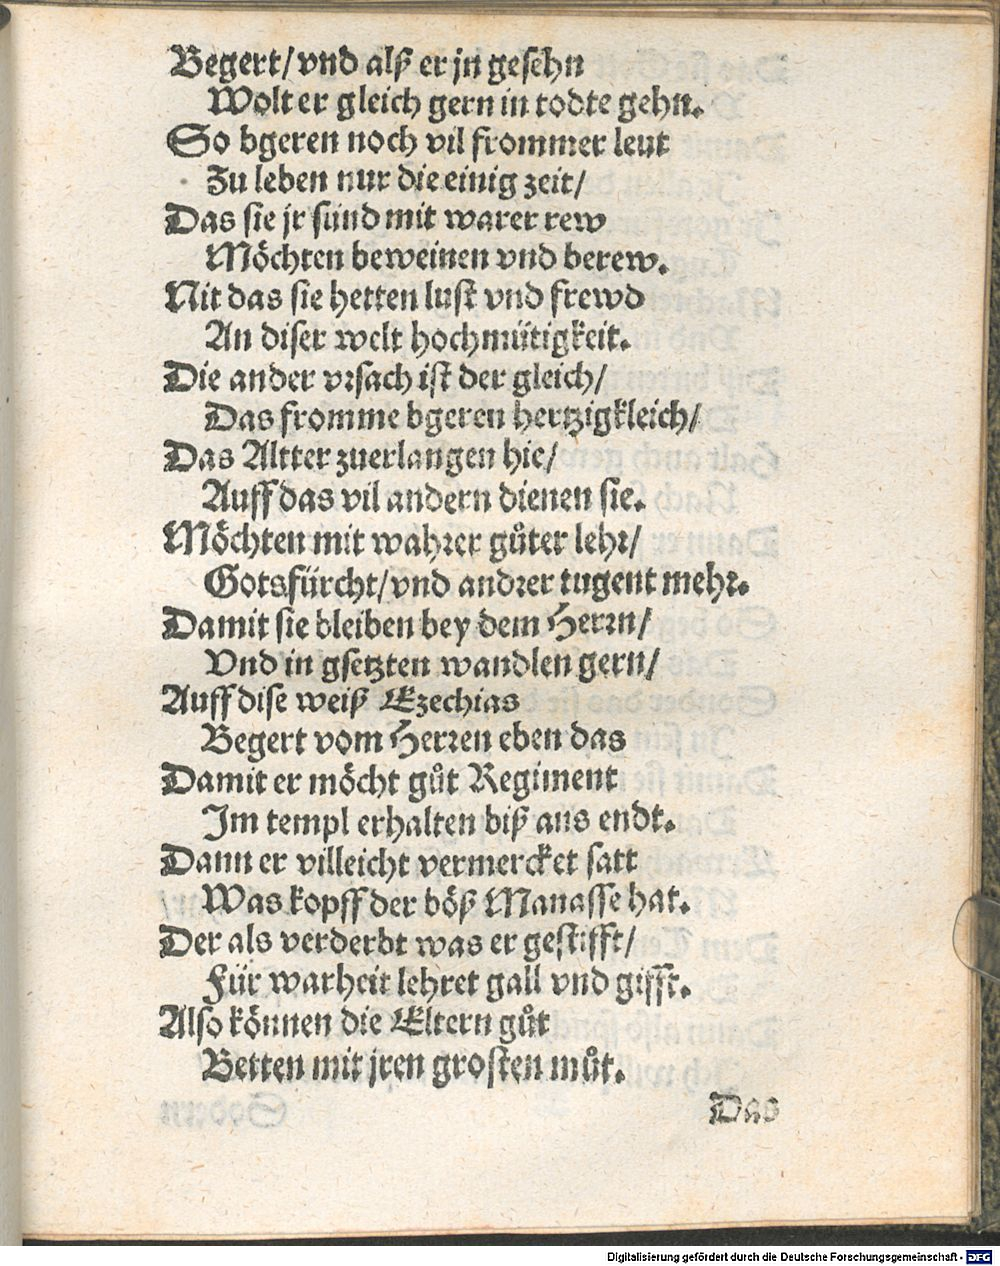 Begert/ vnd alß er jn gesehn
Wolt er gleich gern in todte gehn.
So bgeren noch vil frommer leut
Zu leben nur die einig zeit/
Das sie jr sünd mit warer rew
Möchten beweinen vnd berew.
Nit das sie hetten lust vnd frewd
An diser welt hochmütigkeit.
Die ander vrsach ist der gleich/
Das fromme bgeren hertzigkleich/
Das Altter zuerlangen hie/
Auff das vil andern dienen sie.
Möchten mit wahrer gůter lehr/
Gotsfürcht/ vnd andrer tugent mehr.
Damit sie bleiben bey dem Herrn/
Vnd in gsetzten wandlen gern/
Auff dise weiß Ezechias
Begert vom Herren eben das
Damit er möcht gůt Regiment
Im templ erhalten biß ans endt.
Dann er villeicht vermercket satt
Was kopff der böß Manasse hat.
Der als verderbt was er gestifft/
Für warheit lehret gall vnd gifft.
Also können die Eltern gůt
Betten mit jren grosten můt.
Das
Digitalisierung gefördert durch die Deutsche Forschungsgemeinschaft - DFG